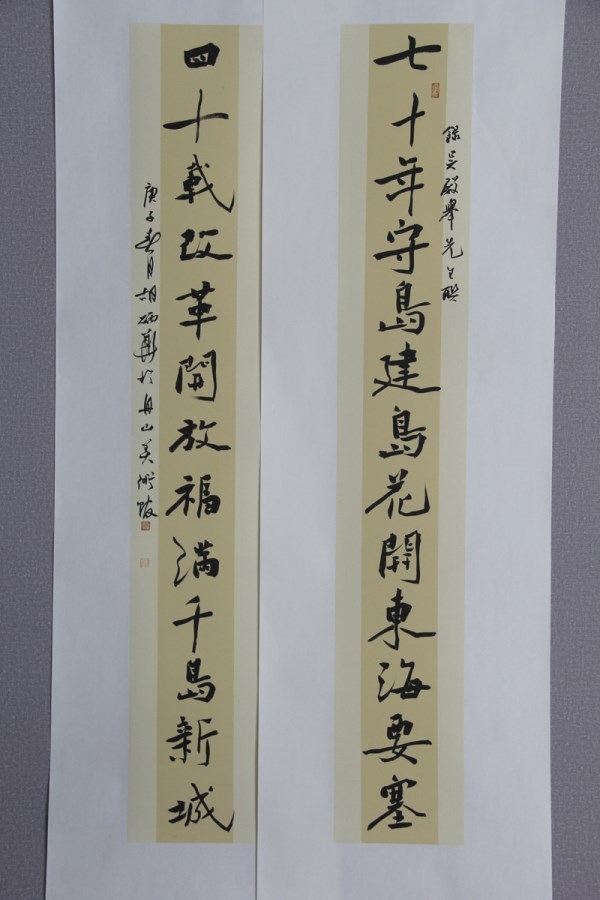 錄吳殿舉先生聯
七十年守島建島花開東海要塞
四十載改革開放福滿千島新城
庚子春月胡炳華於舟山美術館